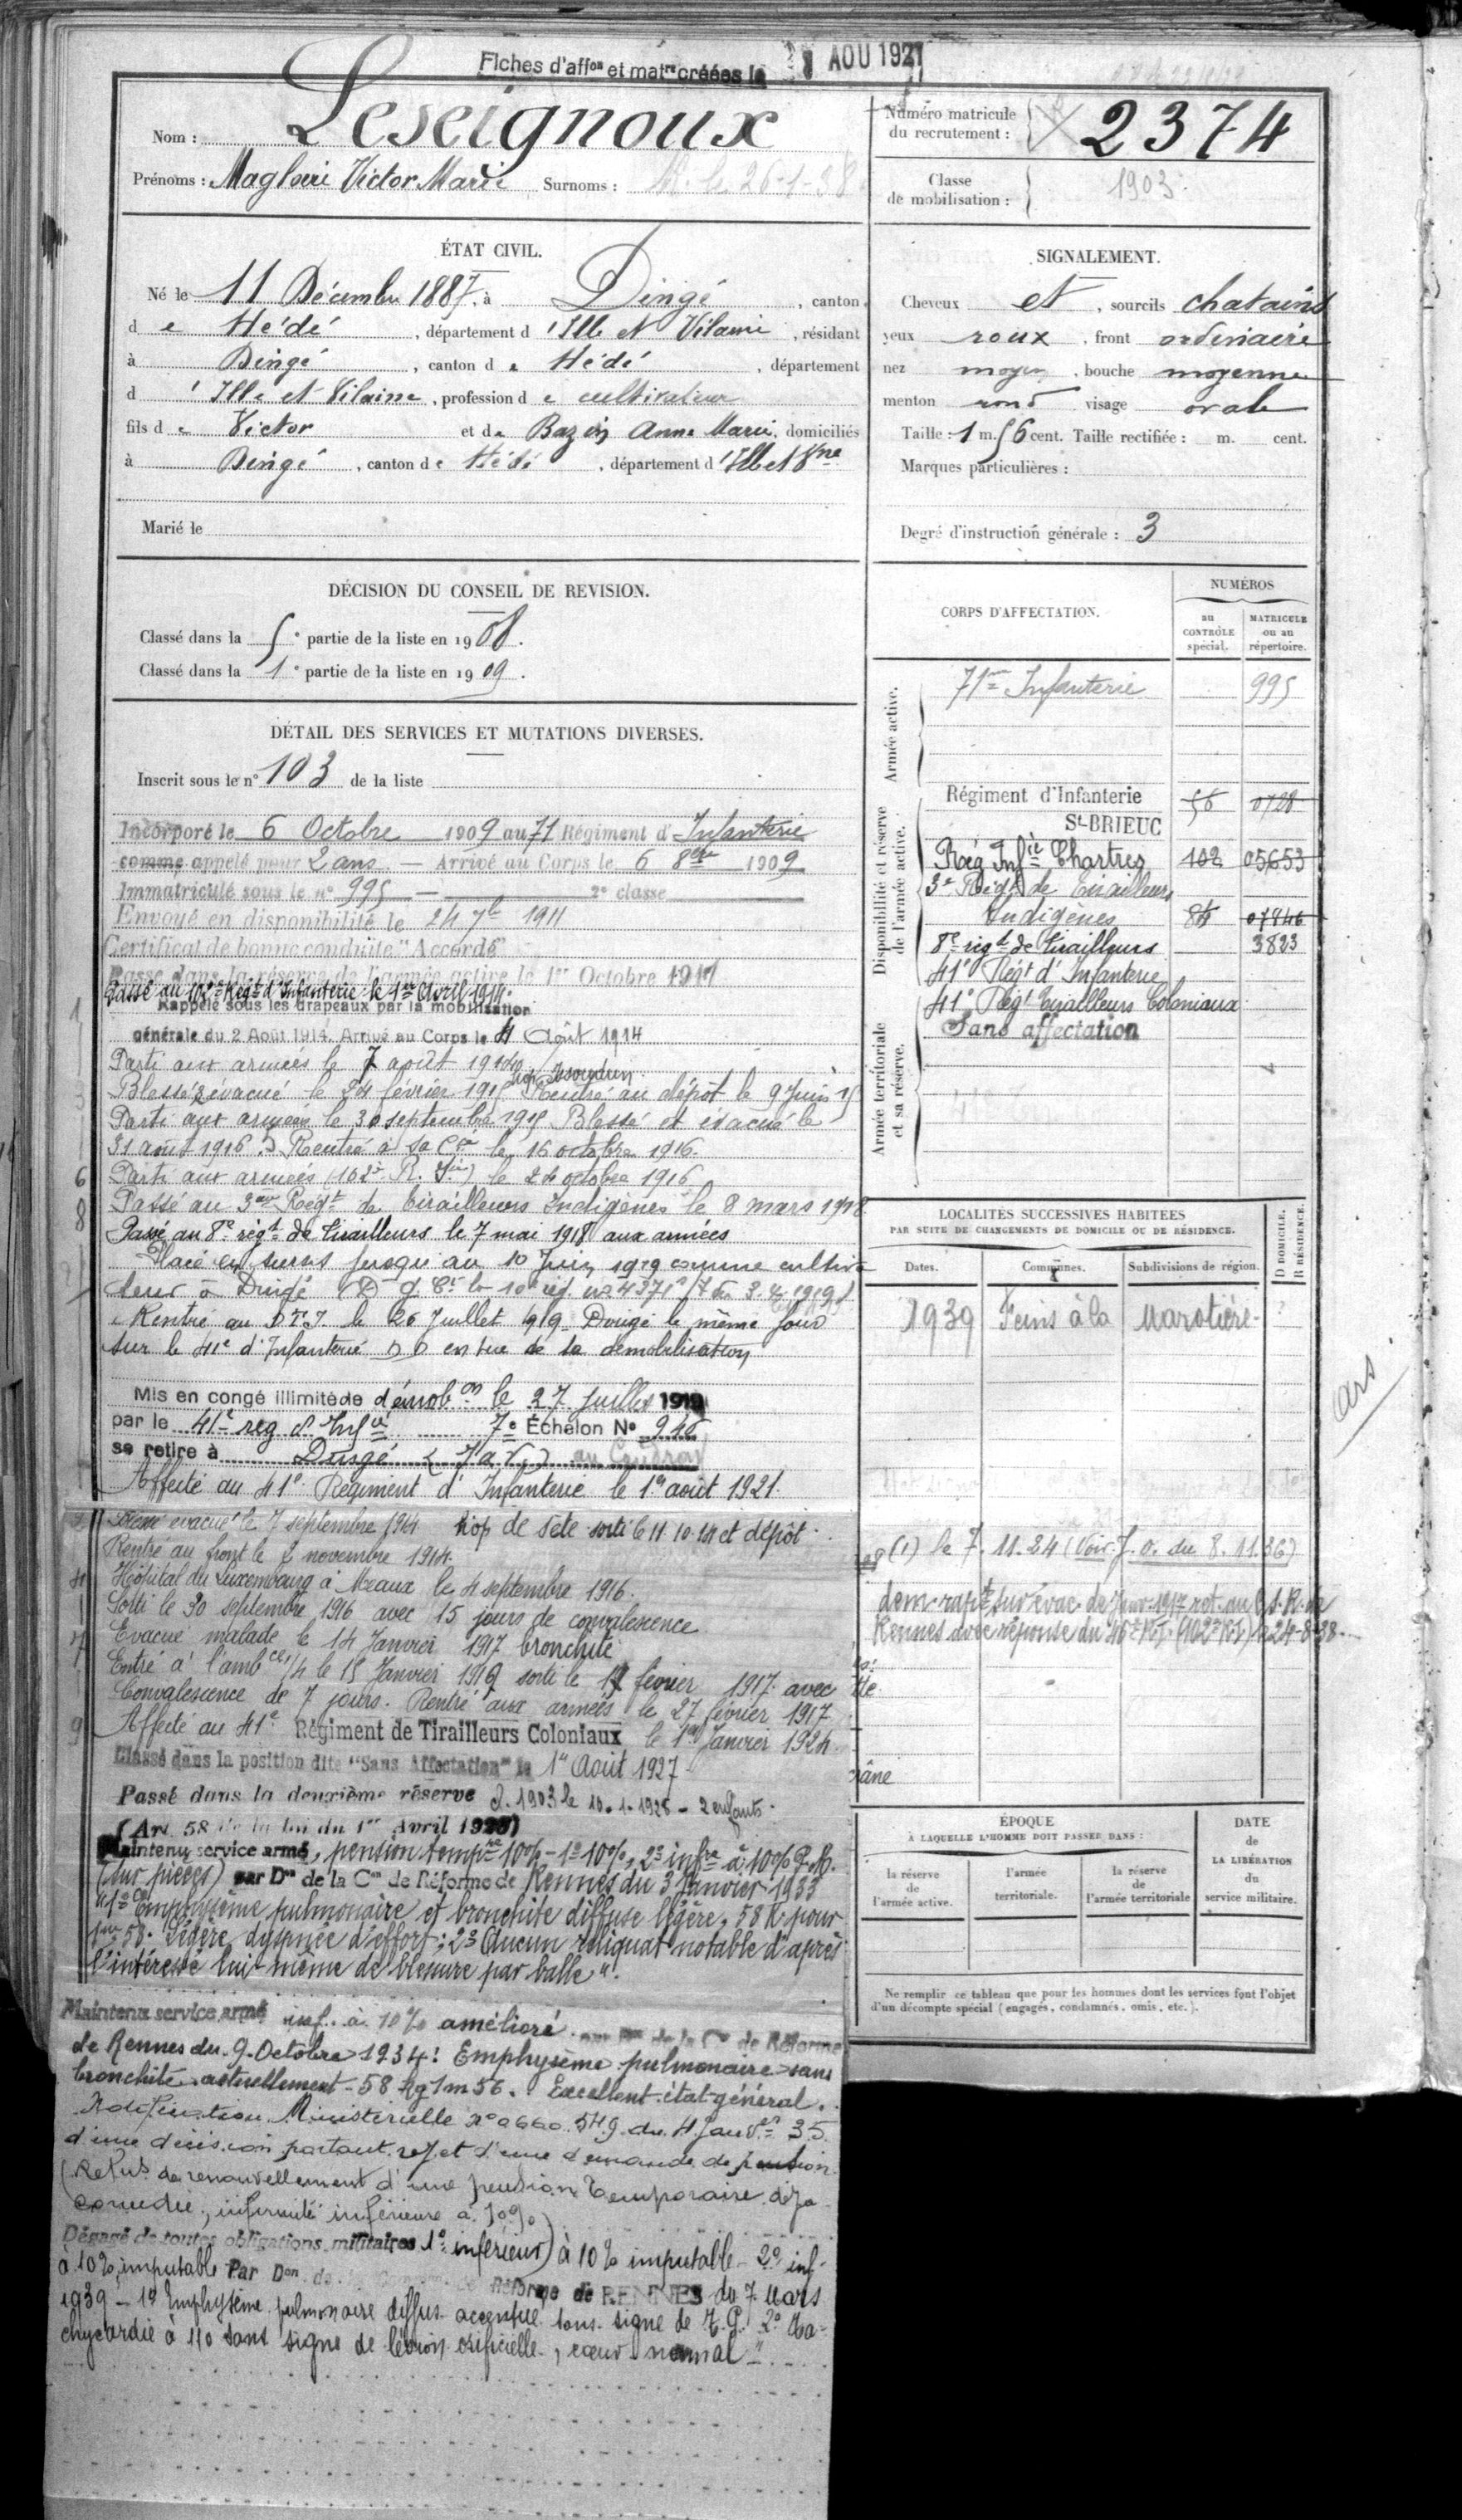 Fiches d'affon et matre créées le AOU 1921
Nom : Leseignoux
Prénoms : Magloire Victor Marie Surnoms :
Numéro matricule du recrutement : 2374
Classe de mobilisation : 1903
ÉTAT CIVIL.
Né le 11 Décembre 1887, à Dingé, canton
de Hédé, département d'Ille et Vilaine, résidant
à Dingé, canton de Hédé, département
d'Ille et Vilaine, profession de cultivateur
fils de Victor et de Bazin Anne Marie, domiciliés
à Dingé, canton de Hédé, département d'Ille et Vne
Marié le
SIGNALEMENT.
Cheveux et, sourcils chatains
yeux roux, front ordinaire
nez moyen, bouche moyenne
menton rond visage ovale
Taille : 1 m. 56 cent. Taille rectifiée : m. cent.
Marques particulières :
Degré d'instruction générale : 3
DÉCISION DU CONSEIL DE REVISION.
Classé dans la 5e partie de la liste en 1908.
Classé dans la 1e partie de la liste en 1909.
DÉTAIL DES SERVICES ET MUTATIONS DIVERSES.
Inscrit sous le n° 103 de la liste
Incorporé le 6 Octobre 1909 au 71 Régiment d'Infanterie
comme appelé pour 2 ans — Arrivé au Corps le 6 8bre 1909
Immatriculé sous le n° 995 — 2e classe
Envoyé en disponibilité le 24 7bre 1911
Certificat de bonne conduite "Accordé"
Passé dans la réserve de l'armée active le 1er Octobre 1911
Passé au 102e Régt d'Infanterie le 1er Avril 1914.
Rappelé sous les drapeaux par la mobilisation
générale du 2 Août 1914. Arrivé au Corps le 4 Août 1914
Parti aux armées le 7 août 1914
Blessé évacué le 24 février 1915 hop Issoudun Rentré au dépôt le 9 Juin 15
Parti aux armées le 30 septembre 1915 Blessé et évacué le
31 août 1916. Rentré à sa Cie le 16 octobre 1916.
Parti aux armées (102e R. Iie) le 24 octobre 1916
Passé au 3me Régt de Tirailleurs Indigènes le 8 mars 1918
Passé au 8e régt de tirailleurs le 7 mai 1918 aux armées
Placé en sursis jusqu'au 10 Juin 1919 comme cultiva
teur à Dingé
Rentré au D.T.I. le 26 Juillet 1919 Dirigé le même jour
sur le 41e d'Infanterie D D en vue de sa démobilisation
Mis en congé illimité de démobon le 27 juillet 1919
par le 41e reg d'Infie 7e Échelon No 946
se retire à Dingé (I et V)
Affecté au 41e Régiment d'Infanterie le 1er août 1921.
Blessé évacué le 7 septembre 1914 hop de Sète sorti le 11.10.14 et dépôt.
Rentré au front le 2 novembre 1914.
Hôpital du Luxembourg à Meaux le 4 septembre 1916.
Sorti le 30 septembre 1916 avec 15 jours de convalescence
Evacué malade le 14 Janvier 1917 bronchite
Entré à l'ambce 1/4 le 15 Janvier 1917 sorti le 17 février 1917 avec
Convalescence de 7 jours. Rentré aux armées le 27 février 1917
Affecté au 41e Régiment de Tirailleurs Coloniaux le 1er Janvier 1924.
Classé dans la position dite "Sans Affectation" le 1er Août 1927
Passé dans la deuxième réserve cl. 1903 le 10.1.1928 - 2 enfants.
(Art. 58 de la loi du 1er Avril 1923)
Maintenu service armé, pension tempre 10% - 1° 10%, 2° infre à 10% P.M.
(sur pièces) par Don de la Con de Réforme de Rennes du 3 Janvier 1933
"1° Emphysème pulmonaire et bronchite diffuse légère, 58 K pour
1m 56. Légère dyspnée d'effort; 2° Aucun reliquat notable d'après
l'intéressé lui-même de blessure par balle".
Maintenu service armé inf. à 10% amélioré par Don de la Con de Réforme
de Rennes du 9 Octobre 1934 : Emphysème pulmonaire sans
bronchite actuellement - 58 kg 1m 56. Excellent état général.
Notification Ministérielle du 4 Janver 35
d'une décision portant rejet d'une demande de pension
(Refus de renouvellement d'une pension temporaire déjà
concédée, infirmité inférieure à 10%)
Dégagé de toutes obligations militaires 1° inférieur à 10% imputable - 2° inf.
à 10% imputable Par Don de Réforme de RENNES du 7 Mars
1939 - 1° Emphysème pulmonaire diffus accentué sans signe de T.P. 2° Ta-
chycardie à 110 sans signe de lésion orificielle, cœur normal".
CORPS D'AFFECTATION.
NUMÉROS
au CONTRÔLE spécial.
MATRICULE ou au répertoire.
Armée active.
71me Infanterie 995
Disponibilité et réserve de l'armée active.
Régiment d'Infanterie 56 0728
St-BRIEUC
Rég Infie Chartres 102 05653
3e Régt de Tirailleurs
Indigènes 84 07846
8e régt de tirailleurs 3823
41e Régt d'Infanterie
41e Régt Tirailleurs Coloniaux
Sans affectation
Armée territoriale et sa réserve.
LOCALITÉS SUCCESSIVES HABITÉES
PAR SUITE DE CHANGEMENTS DE DOMICILE OU DE RÉSIDENCE.
Dates. Communes. Subdivisions de région. D DOMICILE. R RÉSIDENCE.
1939 Feins à la Marotière
(1) le 7.11.24 (Voir J.O. du 8.11.36)
ÉPOQUE
À LAQUELLE L'HOMME DOIT PASSER DANS :
la réserve de l'armée active.
l'armée territoriale.
la réserve de l'armée territoriale
DATE de LA LIBÉRATION du service militaire.
Ne remplir ce tableau que pour les hommes dont les services font l'objet
d'un décompte spécial (engagés, condamnés, omis, etc.).